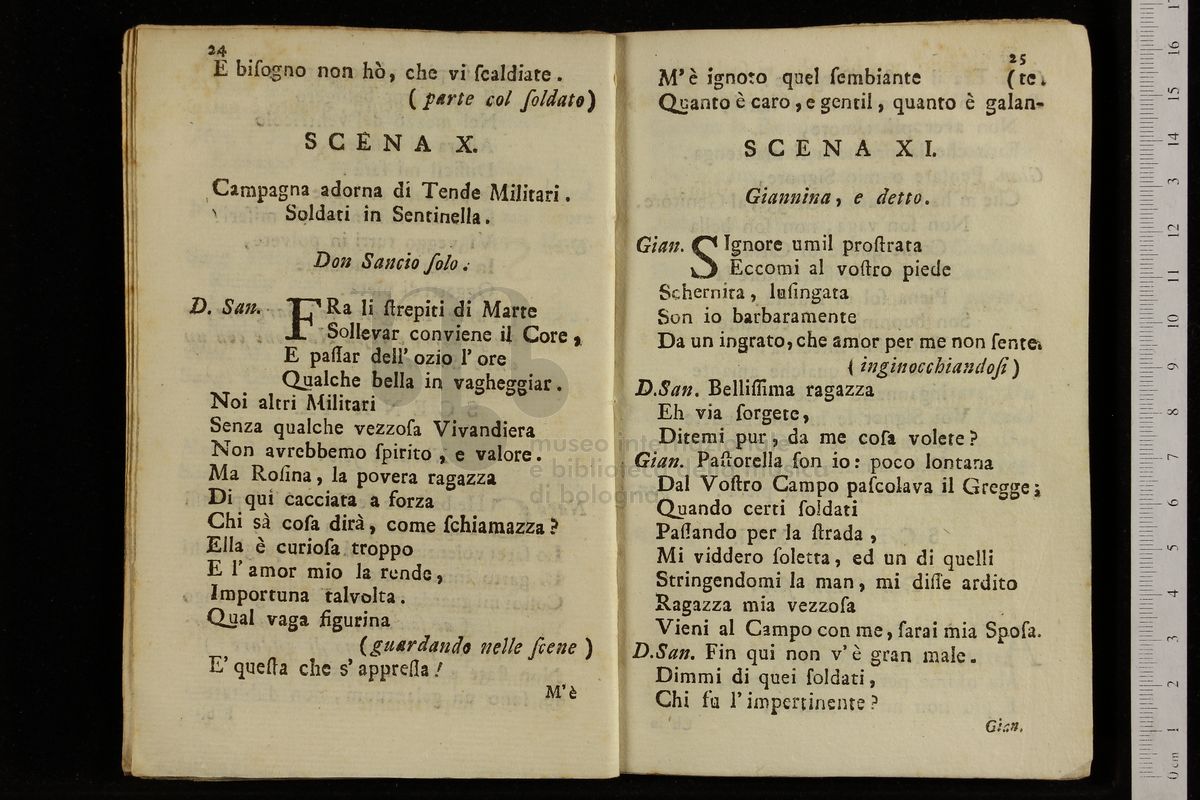 24
E biſogno non hò, che vi ſcaldiate.
(parte col ſoldato)
SCENA X.
Campagna adorna di Tende Militari.
Soldati in Sentinella.
Don Sancio ſolo.
D. San. FRa li ſtrepiti di Marte
Sollevar conviene il Core,
E paſſar dell' ozio l' ore
Qualche bella in vagheggiar.
Noi altri Militari
Senza qualche vezzoſa Vivandiera
Non avrebbemo ſpirito, e valore.
Ma Roſina, la povera ragazza
Di qui cacciata a forza
Chi sà coſa dirà, come ſchiamazza?
Ella è curioſa troppo
E l' amor mio la rende,
Importuna talvolta.
Qual vaga figurina
(guardando nelle ſcene)
E' queſta che s' appreſſa!
M'è
25
M'è ignoto quel ſembiante (te.
Quanto è caro, e gentil, quanto è galan-
SCENA XI.
Giannina, e detto.
Gian. SIgnore umil proſtrata
Eccomi al voſtro piede
Schernita, luſingata
Son io barbaramente
Da un ingrato, che amor per me non ſente.
(inginocchiandoſi)
D.San. Belliſſima ragazza
Eh via ſorgete,
Ditemi pur, da me coſa volete?
Gian. Paſtorella ſon io: poco lontana
Dal Voſtro Campo paſcolava il Gregge;
Quando certi ſoldati
Paſſando per la ſtrada,
Mi viddero ſoletta, ed un di quelli
Stringendomi la man, mi diſſe ardito
Ragazza mia vezzoſa
Vieni al Campo con me, ſarai mia Spoſa.
D.San. Fin qui non v' è gran male.
Dimmi di quei ſoldati,
Chi fu l' impertinente?
Gian.
museo internazionale
e biblioteca della musica
di bologna
0 cm 1 2 3 4 5 6 7 8 9 10 11 12 13 14 15 16 17